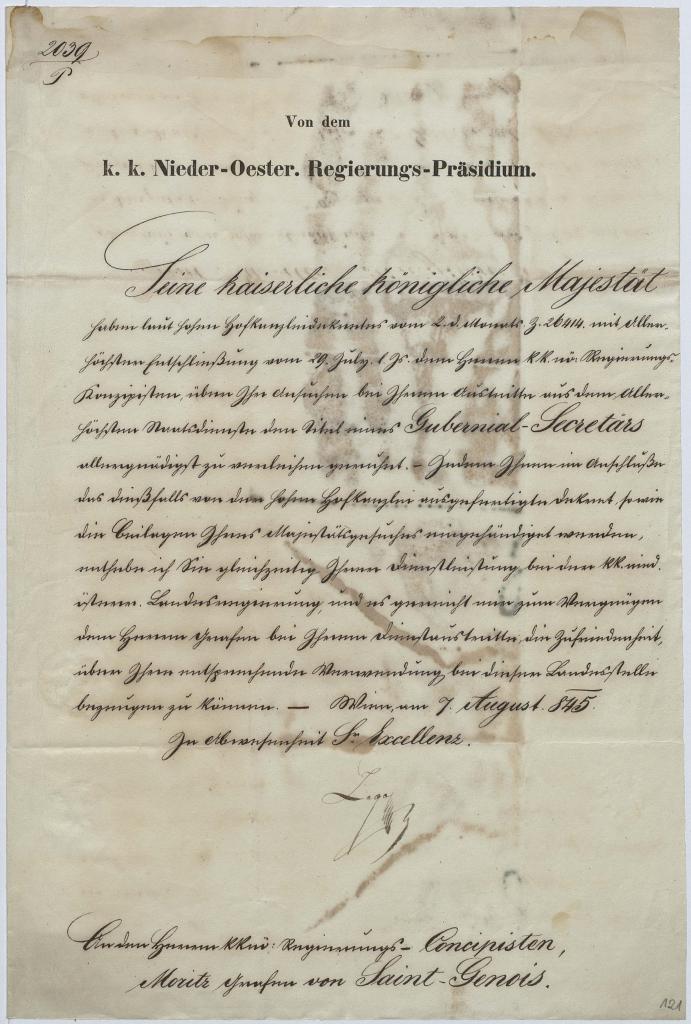 2039
P
Von dem
k. k. Nieder-Oester. Regierungs-Präsidium.
Seine kaiserliche königliche Majestät
haben laut hohen Hofkanzleidekretes vom 2. d. Monats Z. 26414. mit Aller-
höchster Entschließung vom 29. July l. Js. dem Herrn k.k. nö: Regierungs-
Konzipisten, über Ihr Ansuchen bei Ihrem Austritte aus dem Aller-
höchsten Staatsdienste den Titel eines Gubernial-Secretärs
allergnädigst zu verleihen geruhet. – Indem Ihnen im Anschluße
das dießfalls von der hohen Hofkanzlei ausgefertigte Dekret, sowie
die Beilagen Ihres Majestätsgesuches eingehändiget werden,
enthebe ich Sie gleichzeitig Ihrer Dienstleistung bei der kk. nied.
österr. Landesregierung, und es gereicht mir zum Vergnügen
dem Herrn Grafen bei Ihrem Dienstaustritte, die Zufriedenheit,
über Ihre entsprechende Verwendung bei dieser Landesstelle
bezeugen zu können. — Wien, am 7. August 845.
In Abwesenheit Sr Excellenz.
An den Herrn kknö: Regierungs- Concipisten,
Moritz Grafen von Saint-Genois.
121